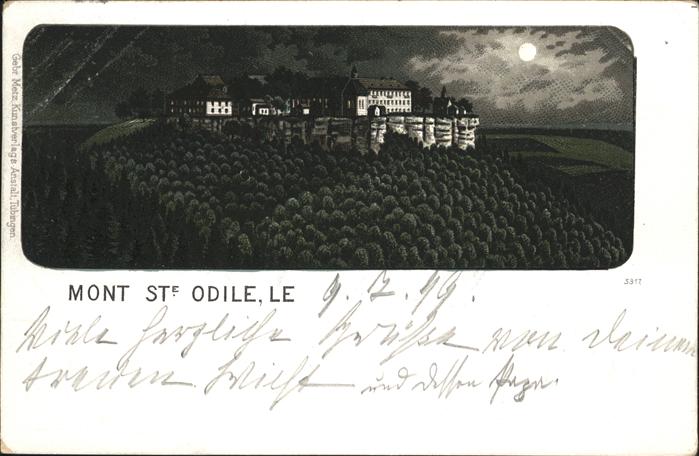 Gebr. Metz, Kunstverlags Anstalt, Tübingen.
MONT STE ODILE, LE 9. 7. 99.
3317
Viele herzliche Grüße von Deinem
treuen und dessen Papa.